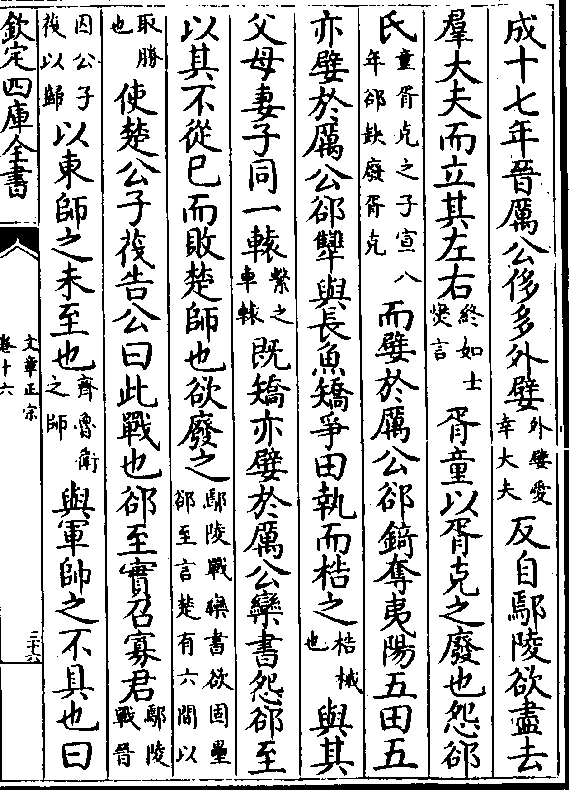 成十七年晉厲公侈多外嬖外嬖愛幸大夫反自鄢陵欲盡去
羣大夫而立其左右終如士燮言胥童以胥克之廢也怨郤
氏童胥克之子宣八年郤缺廢胥克而嬖於厲公郤錡奪夷陽五田五
亦嬖於厲公郤犨與長魚矯爭田執而梏之梏械也與其
父母妻子同一轅繫之車轅既矯亦嬖於厲公欒書怨郤至
以其不從已而敗楚師也欲廢之鄢陵戰欒書欲固壘郤至言楚有六間以
取勝也使楚公子茷告公曰此戰也郤至實召寡君鄢陵戰晉
囚公子茷以歸以東師之未至也齊魯衛之師與軍帥之不具也曰
欽定四庫全書
文章正宗
卷十六